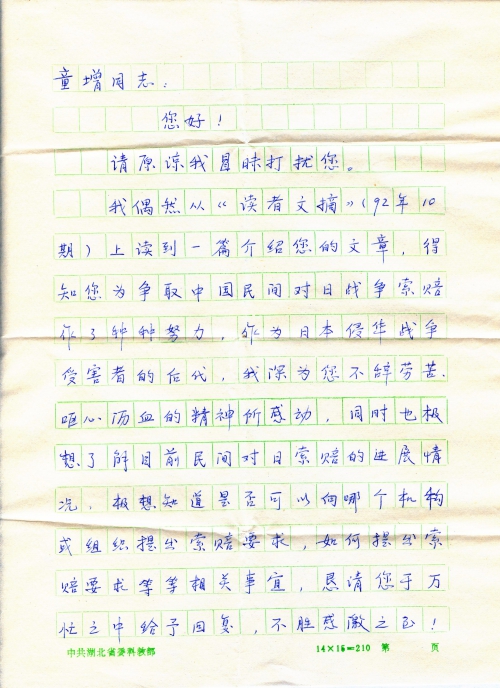 童增同志：
您好！
请原谅我冒昧打扰您。
我偶然从《读者文摘》（92年10
期）上读到一篇介绍您的文章，得
知您为争取中国民间对日战争索赔
作了种种努力，作为日本侵华战争
受害者的后代，我深为您不辞劳苦、
呕心沥血的精神所感动，同时也极
想了解目前民间对日索赔的进展情
况，极想知道是否可以向哪个机构
或组织提出索赔要求，如何提出索
赔要求等等相关事宜，恳请您于万
忙之中给予回复，不胜感激之至！
中共湖北省委科教部 14×15=210 第 页